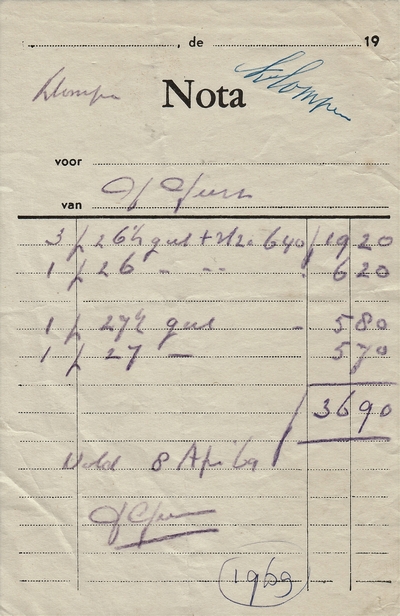 , de 19
Klompen Nota Klompen
voor
van
3 p 26½ gul + 640 19 20
1 p 26 - -- 6 20
1 p 27½ gul - 5 80
1 p 27 - 5 70
36 90
8 April 69
1969